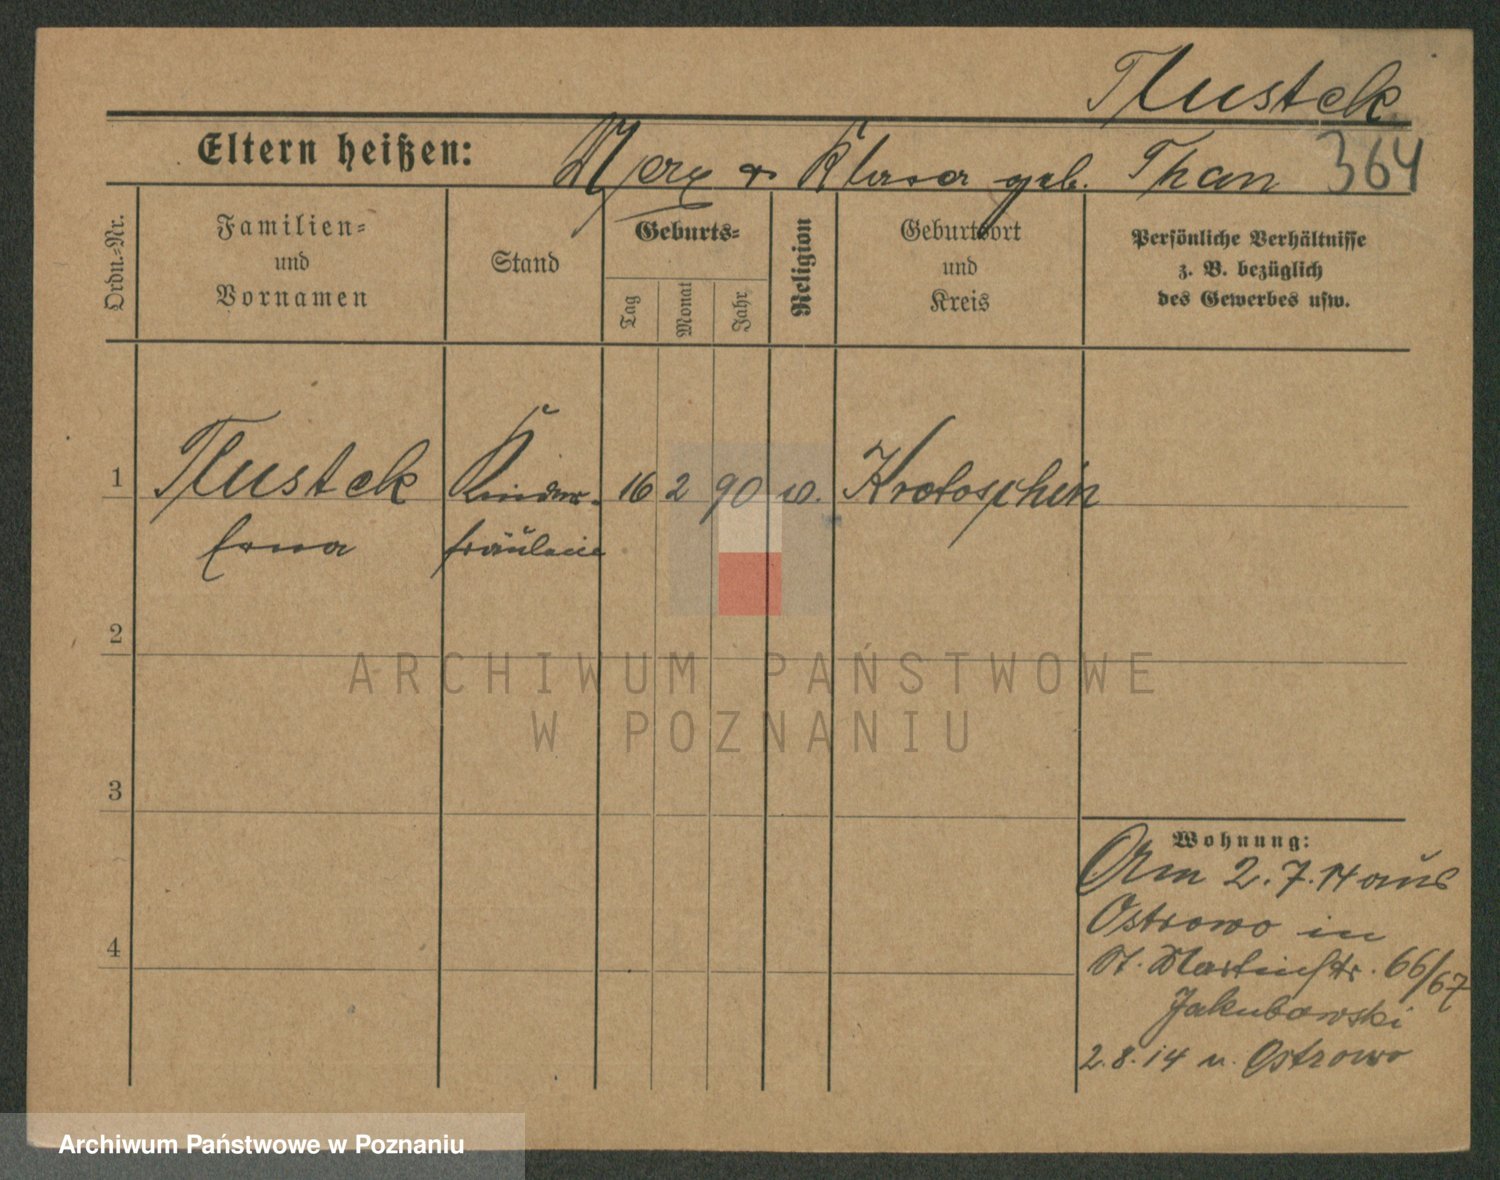 Tlustek
Eltern heißen: Marx & Klara geb. Than 364
Ordn.-Nr.
Familien-
und
Vornamen
Stand
Geburts-
Tag
Monat
Jahr
Religion
Geburtsort
und
Kreis
Persönliche Verhältnisse
z. B. bezüglich
des Gewerbes usw.
1 Tlustek Kinder- 16 2 90 Krotoschin
Erna fräulein
2
ARCHIWUM PAŃSTWOWE
W POZNANIU
3
Wohnung:
2.7.14 aus
Ostrowo in
4
St. Martinstr. 66/67
Jakubowski
2.8.14 n. Ostrowo
Archiwum Państwowe w Poznaniu